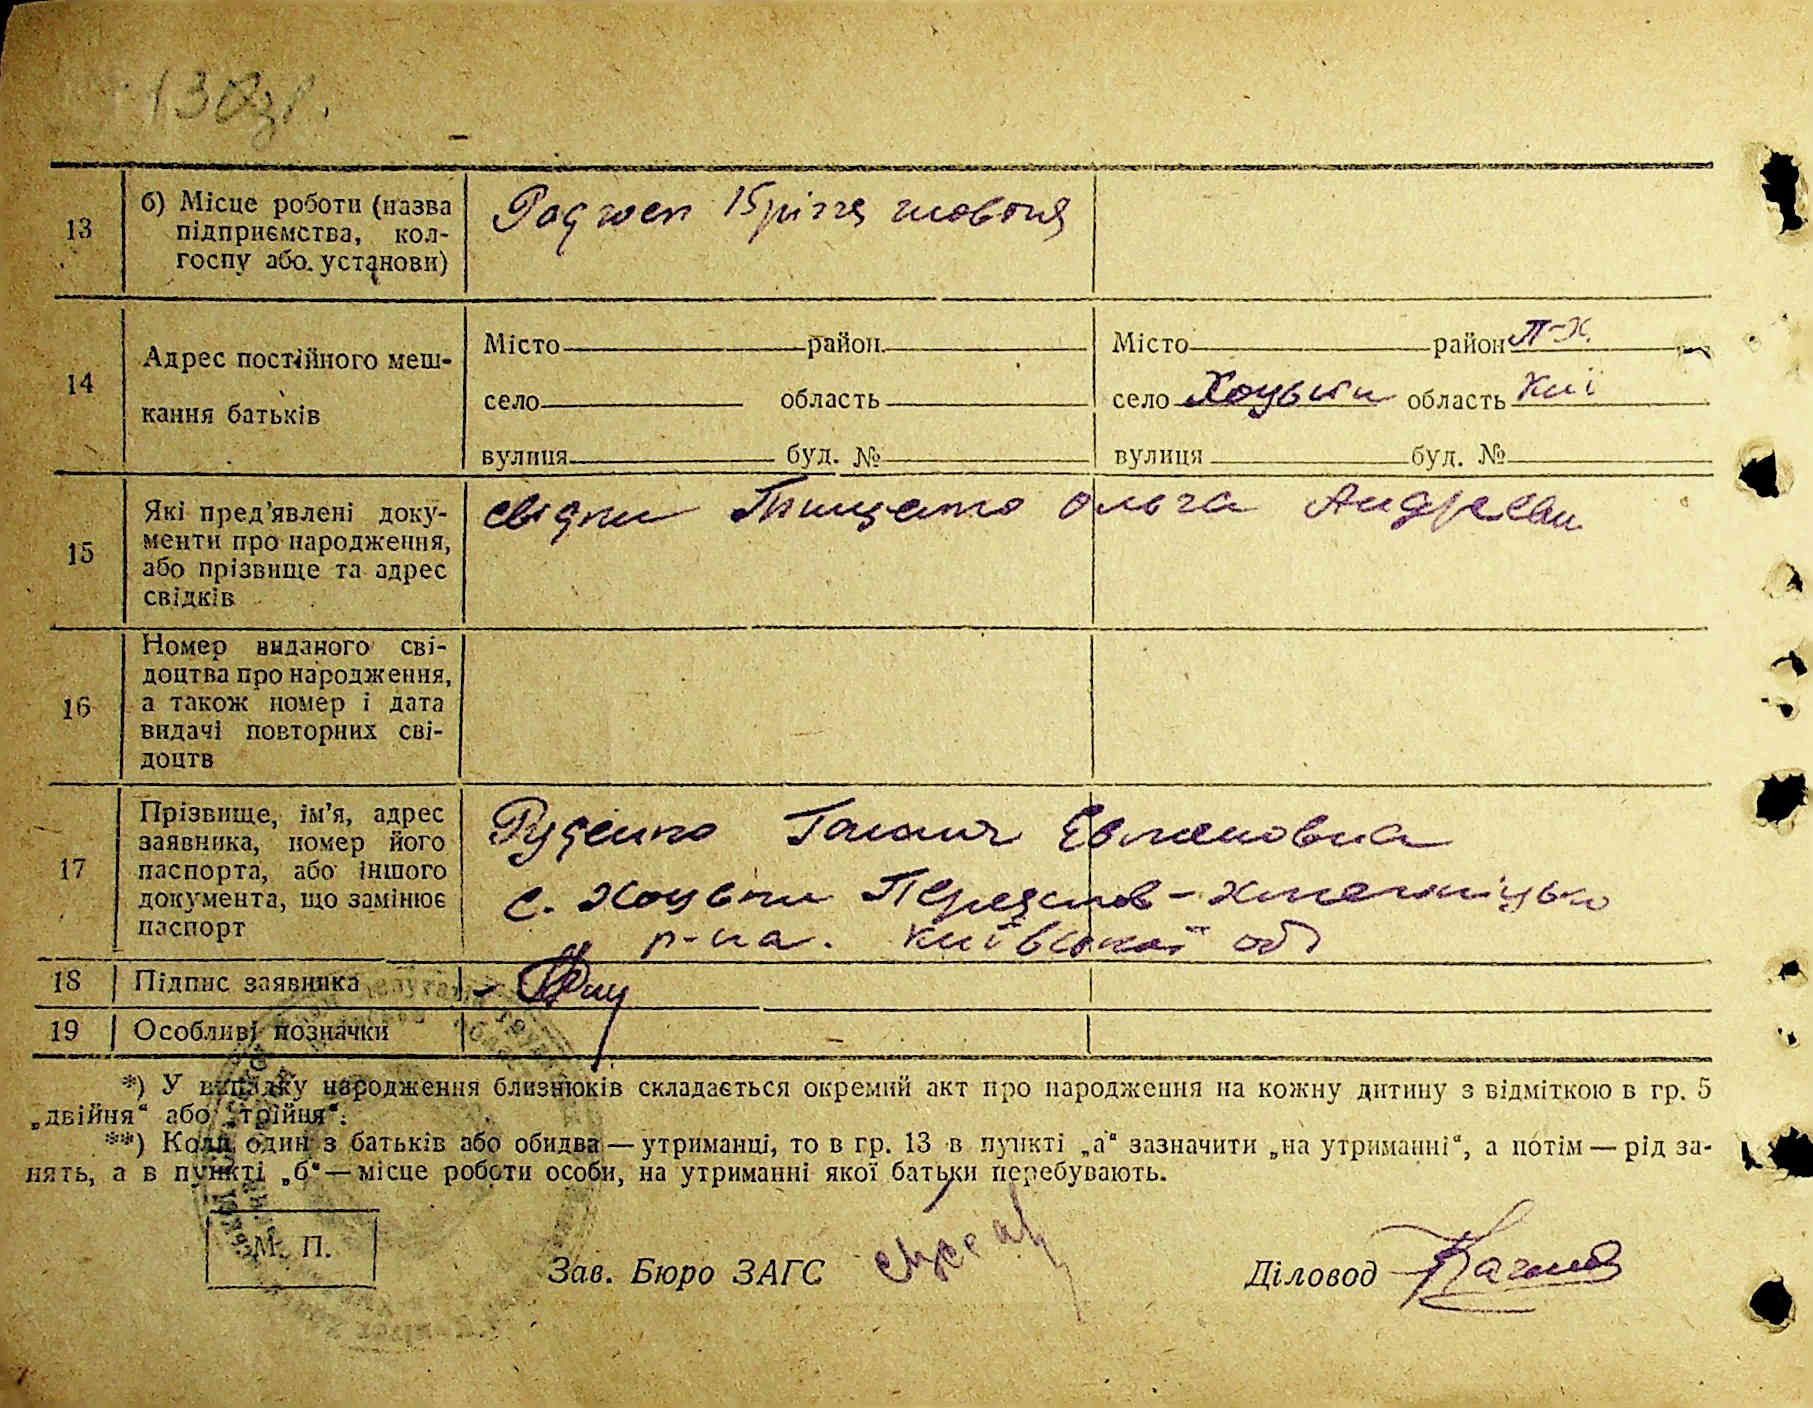 13 б) Місце роботи (назва
підприємства, кол-
госпу або установи)
Радгосп 15 річчя жовтня
14 Адрес постійного меш-
кання батьків
Місто район Місто район П-Х.
село область село Хоцьки область Киї
вулиця буд. № вулиця буд. №
15 Які пред'явлені доку-
менти про народження,
або прізвище та адрес
свідків
свідки Ольга Андреевн
16 Номер виданого сві-
доцтва про народження,
а також номер і дата
видачі повторних сві-
доцтв
17 Прізвище, ім'я, адрес
заявника, номер його
паспорта, або іншого
документа, що замінює
паспорт
Руденко Галина
с. Хоцьки Переяслав-Хмельницько
р-на. Київської обл
18 Підпис заявника
19 Особливі позначки
*) У випадку народження близнюків складається окремий акт про народження на кожну дитину з відміткою в гр. 5
„двійня“ або „трійня“.
**) Коли один з батьків або обидва — утриманці, то в гр. 13 в пункті „а“ зазначити „на утриманні“, а потім — рід за-
нять, а в пункті „б“ — місце роботи особи, на утриманні якої батьки перебувають.
М. П.
Зав. Бюро ЗАГС Діловод